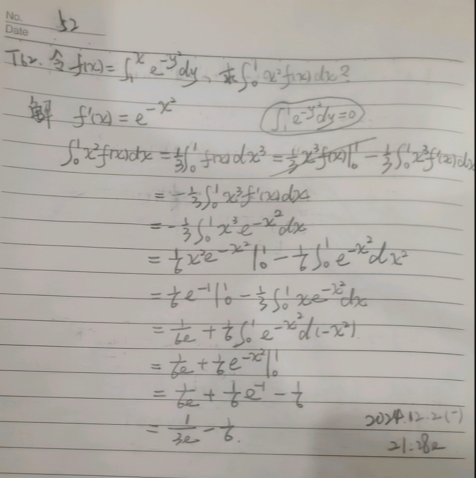 No. 52
Date
T62. 令f(x)=∫₁ˣ e^{-y²}dy, 求∫₀¹ x²f(x)dx?
解 f'(x)=e^{-x²} ∫₁¹ e^{-y²}dy=0
∫₀¹ x²f(x)dx = 1/3 ∫₀¹ f(x)dx³ = 1/3 x³f(x)|₀¹ - 1/3 ∫₀¹ x³f'(x)dx
= -1/3 ∫₀¹ x³f'(x)dx
= -1/3 ∫₀¹ x³e^{-x²}dx
= 1/6 x²e^{-x²}|₀¹ - 1/6 ∫₀¹ e^{-x²}dx²
= 1/6 e^{-1}|₀¹ - 1/3 ∫₀¹ xe^{-x²}dx
= 1/6e + 1/6 ∫₀¹ e^{-x²}d(-x²)
= 1/6e + 1/6 e^{-x²}|₀¹
= 1/6e + 1/6 e^{-1} - 1/6
= 1/3e - 1/6.
2024.12.2(一)
21:28